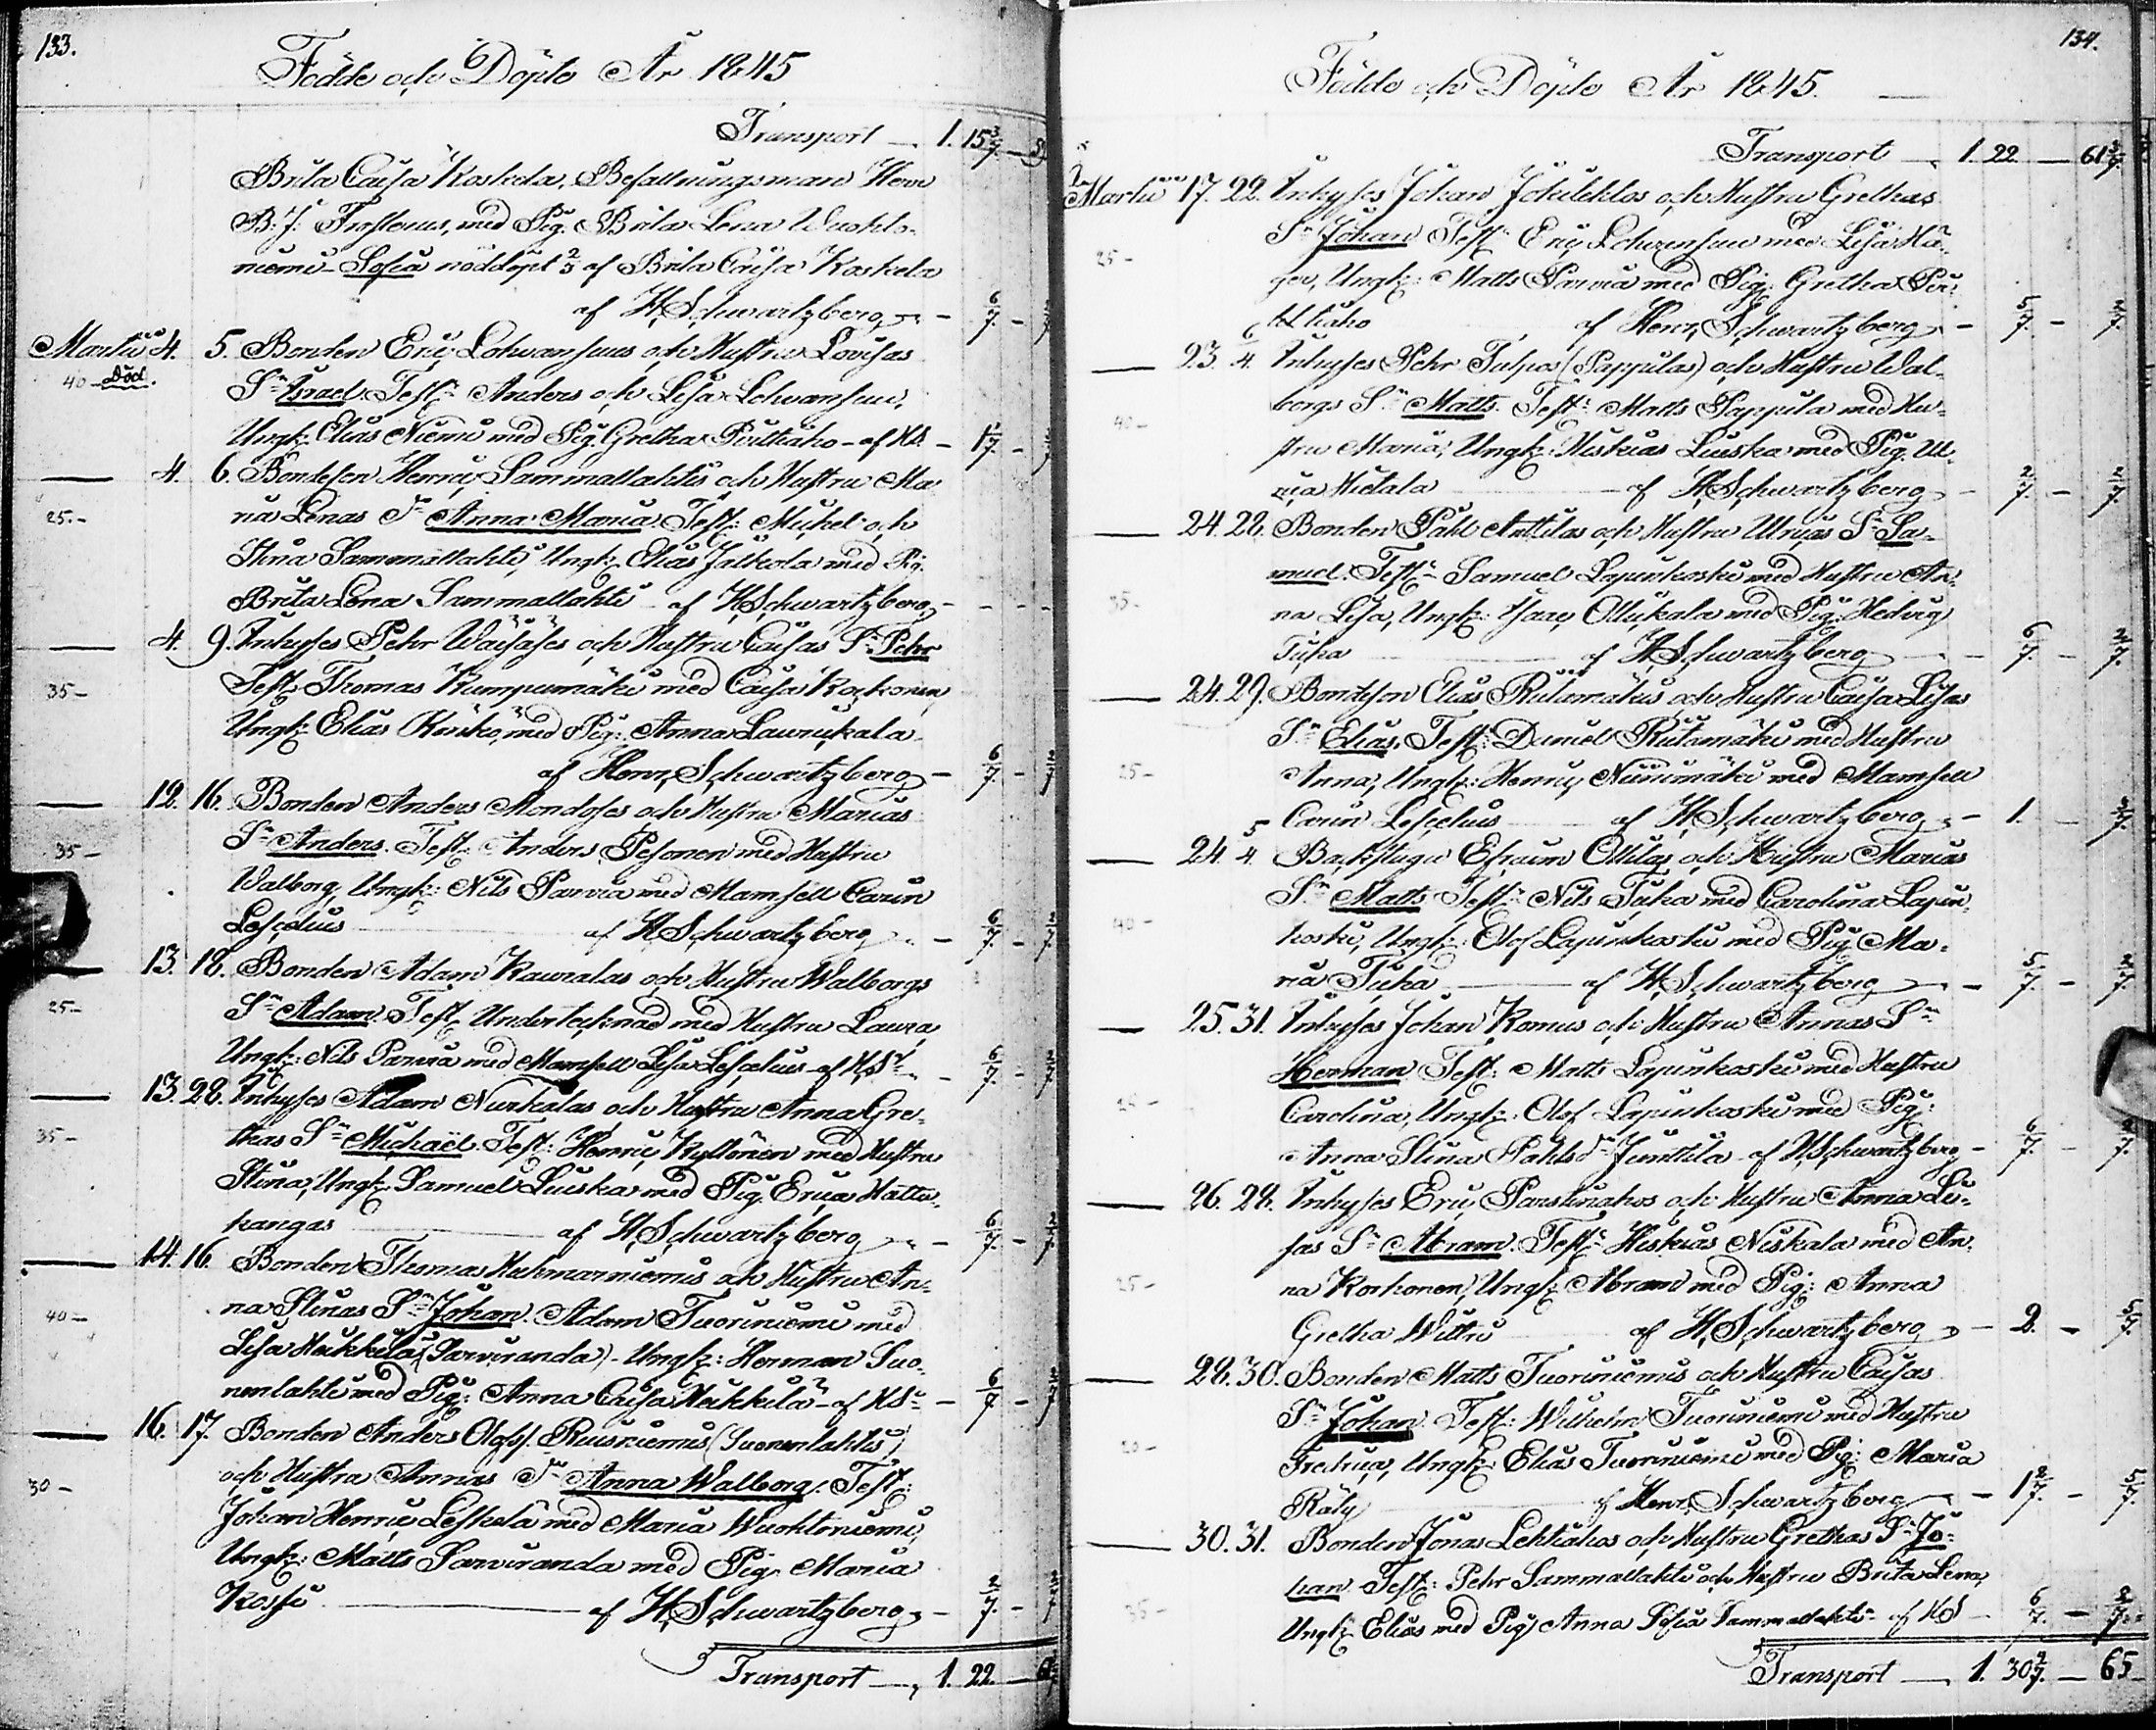 133.
Födde och Döpte År 1845
Transport — 1. 15 3/7. —
Brita Caisa Koskela, Befallningsman Herr
B. J. Frosterus, med Pig. Brita Lena Wuohto-
niemi — Sofia nöddöpt 2/3 af Brita Caisa Koskela
af H. Schwartzberg — 6/7. —
Martii 4. 5. Bonden Eric Lohvansuus och Hustru Lovisas
40 — Död. Sn Israel. Test: Anders och Lisa Lohvansuu,
Ungk: Elias Niemi med Pig. Gretha Piiltiaho — af HS. — 1 1/7. —
— 4. 6. Bondeson Henric Sammallahtis och Hustru Ma
25. — ria Lenas Dr Anna Maria. Test: Mickel och
Stina Sammallahti, Ungk: Elias Jälkölä med Pig.
Brita Lena Sammallahti — af H. Schwartzberg —
— 4. 9. Inhyses Pehr Wäisäses och Hustru Caisas Sn Pehr
35 — Test: Thomas Kumpumäki med Caisa Korkonen,
Ungk: Elias Körkkö, med Pig: Anna Laurickala
af Henr. Schwartzberg — 6/7. —
— 12. 16. Bonden Anders Mondoses och Hustru Marias
35 — Sn Anders. Test: Anders Pesonen med Hustru
Walborg, Ungk: Nils Parvia med Mamsell Carin
Lescelius — af H. Schwartzberg — 6/7. —
— 13. 18. Bonden Adam Kauralas och Hustru Walborgs
25 — Sn Adam. Test: Undertecknad med Hustru Laura,
Ungk: Nils Parvia med Mamsell Lisa Lescelius — af HS. — 6/7. —
— 13. 28. Inhyses Adam Nurkalas och Hustru Anna Gre-
35 — thas Sn Michaël. Test: Henric Kyllönen med Hustru
Stina, Ungk: Samuel Luiska med Pig. Erica Hatta-
kangas — af H. Schwartzberg — 6/7. —
— 14. 16. Bonden Thomas Hahmarniemis och Hustru An-
40 — na Stinas Sn Johan. Adam Tuoriniemi med
Lisa Heikkilä (Parviranda) — Ungk: Herman Suo-
nenlahti med Pig: Anna Caisa Heikkilä — af HS. — 6/7 —
— 16. 17. Bonden Anders Olofss. Ruisniemis (Suonenlahtis)
30 — och Hustru Annas Dr Anna Walborg. Test:
Johan Henric Leskelä med Maria Wuohtoniemi,
Ungk: Matts Parviranda med Pig. Maria
Kossi — af H. Schwartzberg — 2/7. —
Transport — 1. 22. —
134.
Födde och Döpte År 1845.
Transport — 1. 22 — 61 3/7.
Martii 17. 22. Inhyses Johan Jokilehtos och Hustru Grethas
25 — Sn Johan. Test: Eric Lohvansuu med Lisa Hä-
ger, Ungk: Matts Parvia med Pig: Gretha Pii-
tiltiaho af Henr. Schwartzberg — 5/7. — 2/7.
— 23. 6/4. Inhyses Pehr Tulpos (Pappilas) och Hustru Wal-
40 — borgs Sn Matts. Test: Matts Pappila med Hu-
stru Maria, Ungk: Hiskias Luiska med Pig. Ul-
rica Hietala — af H. Schwartzberg — 2/7. — 2/7
— 24. 28. Bonden Påhl Anttilas och Hustru Ulricas Sn Sa-
35 — muel. Test: Samuel Lapinkoski med Hustru An-
na Lisa, Ungk: Isaac Ollikala med Pig: Hedvig
Tuha — af H. Schwartzberg — 6/7. — 2/7.
— 24. 29. Bondeson Elias Riitamäkis och Hustru Caisa Lisas
25 — Sn Elias. Test: Daniel Riitamäki med Hustru
Anna, Ungk: Henric Niinimäki med Mamsell
Carin Lescelius — af H. Schwartzberg — 1. — 2/7.
— 24. 5/4. Backstugu Efraim Ollilas och Hustru Marias
40 — Sn Matts. Test: Nils Tuha med Carolina Lapin-
koski, Ungk: Olof Lapinkoski med Pig. Ma-
ria Tuha — af H. Schwartzberg — 5/7. — 2/7.
— 25. 31. Inhyses Johan Komus och Hustru Annas Sn
25 — Herman. Test: Matts Lapinkoski med Hustru
Carolina, Ungk: Olof Lapinkoski med Pig:
Anna Stina Påhls Dr Junttila — af H. Schwartzberg — 6/7. — 2/7.
— 26. 28. Inhyses Eric Parstinahos och Hustru Anna Li-
25 — sas Sn Abram. Test: Hiskias Niskala med An-
na Korkonen, Ungk: Abram med Pig: Anna
Gretha Wittri — af H. Schwartzberg — 2. —
— 28. 30. Bonden Matts Tuoriniemis och Hustru Caisas
20 — Sn Johan. Test: Wilhelm Tuoriniemi med Hustru
Fredrica, Ungk: Elias Tuoriniemi med Pig: Maria
Räty — af Henr. Schwartzberg — 1 2/7. —
— 30. 31. Bonden Jonas Lehtiahos och Hustru Grethas Sn Jo-
35 — han. Test: Pehr Sammallahti och Hustru Brita Lena,
Ungk: Elias med Pig. Anna Sofia Sammallahti — af HS — 6/7. — 2/7.
Transport — 1. 30 2/7. — 65